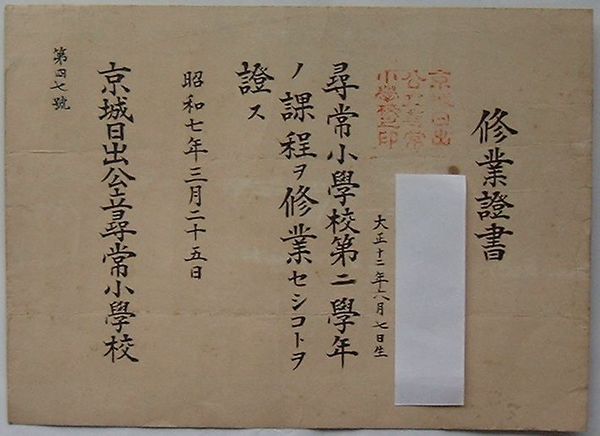 修業證書
京城日出
公立尋常
小學校之印
大正十二年八月七日生
尋常小學校第二學年
ノ課程ヲ修業セシコトヲ
證ス
昭和七年三月二十五日
京城日出公立尋常小學校
第四七號